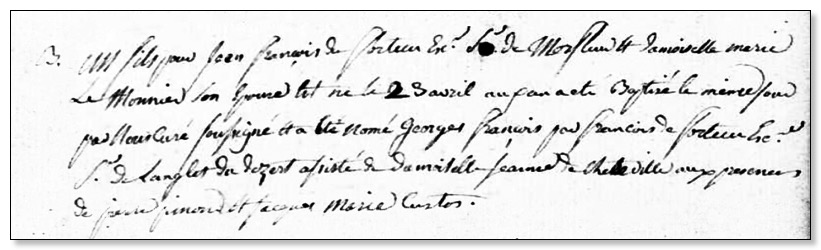 B. un fils pour Jean françois de forteu Ec.r S.r de Monfleur et damoiselle marie
Le Monnier son Epouse est né le 23 avril au pan a eté Baptisé le même jour
par Nous Curé soussigné et a été nomé georges françois par françois de forteu Ec.r
S.r de Langlet du dezert assisté de damoiselle jeanne de aux presences
de pierre et jacques marie Curtos.